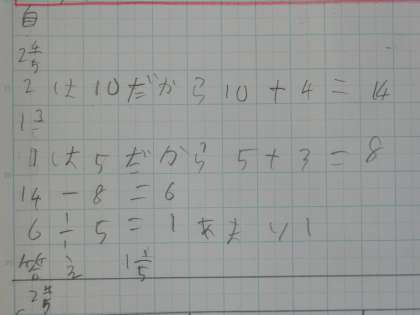 自
2 4/5
2は10だから 10+4=14
1 3
1は5だから 5+3=8
14-8=6
6÷5=1あまり1
1 1/5
2 4/5